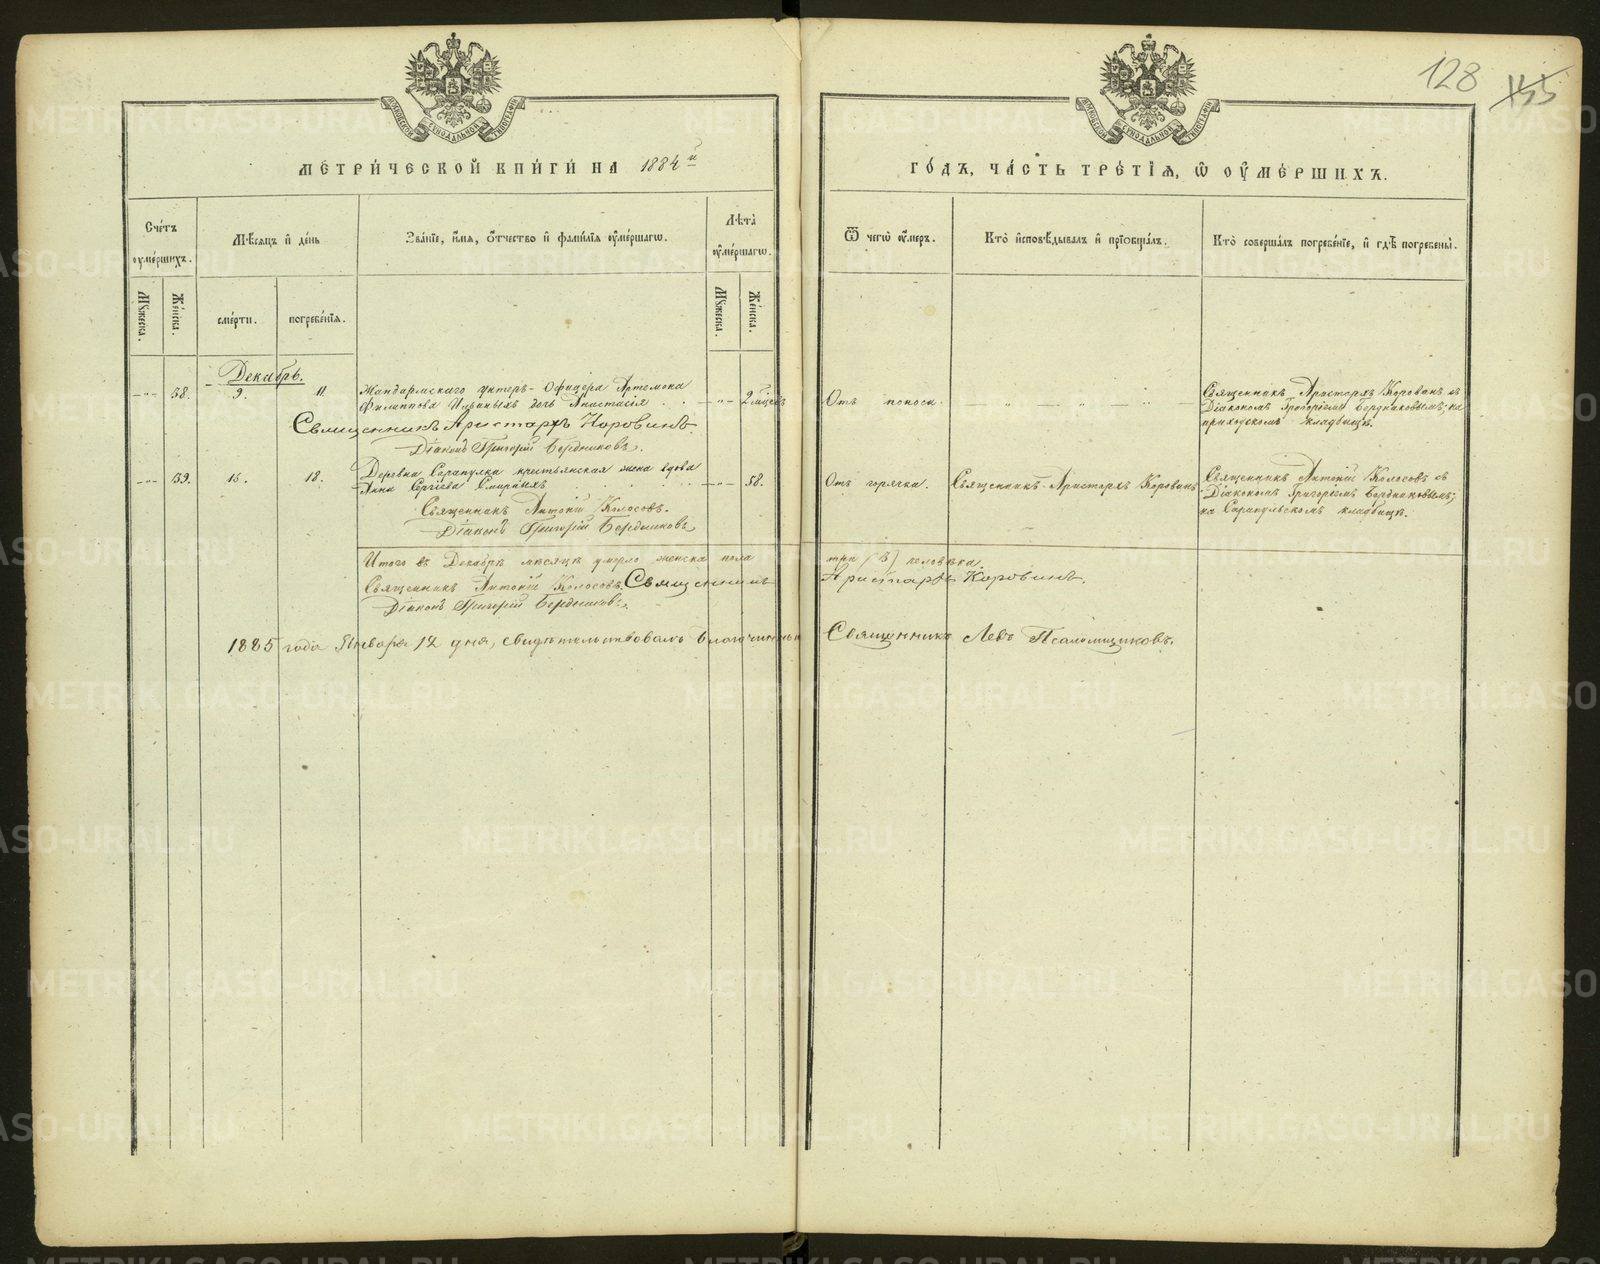 128
155
МЕТРИЧЕСКОЙ КНИГИ НА 1884й
ГОДЪ, ЧАСТЬ ТРЕТІЯ, Ѿ ОУМЕРШИХЪ.
Счетъ оумершихъ.
Мѣсяцъ и день
Званіе, имя, отчество и фамилія оумершагѡ.
Лѣта оумершагѡ.
Ѿ чегѡ оумеръ.
Кто исповѣдывалъ и пріобщалъ.
Кто совершалъ погребеніе, и гдѣ погребены.
Мужеска.
Женска.
смерти.
погребенія.
Мужеска.
Женска.
Декабрь.
58. 9. 11. Жандармскаго унтеръ-Офицера Артемона
Филиппова Ильиныхъ дочь Анастасія
2 мѣсяц
Отъ поноса.
Священникъ Аристархъ Коровинъ съ
Діакономъ Григоріемъ Бердниковымъ; на
приходскомъ кладбищѣ.
Священникъ Аристархъ Коровинъ.
Діаконъ Григорій Бердниковъ.
59. 16. 18. Деревни Сарапулки крестьянская жена вдова
Анна Сергіева
58.
Отъ горячки.
Священникъ Аристархъ Коровинъ
Священникъ Антоній Колосовъ съ
Діакономъ Григоріемъ Бердниковымъ;
на Сарапульскомъ кладбищѣ.
Священникъ Антоній Колосовъ.
Діаконъ Григорій Бердниковъ
Итого въ Декабрѣ мѣсяцѣ умерло женска пола три (3) человѣка.
Священникъ Антоній Колосовъ. Священникъ Аристархъ Коровинъ.
Діаконъ Григорій Бердниковъ.
1885 года Января 12 дня, свидѣтельствовалъ Благочинный Священникъ Левъ Псаломщиковъ.
METRIKI.GASO-URAL.RU